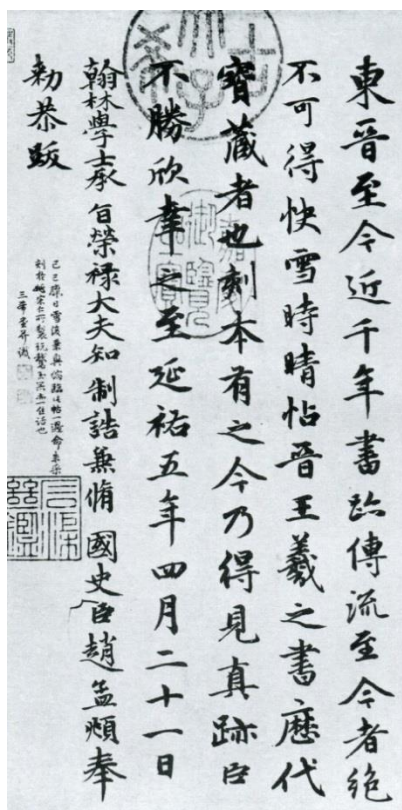 東晉至今近千年書跡傳流至今者絕
不可得快雪時晴帖晉王羲之書歷代
寶藏者也刻本有之今乃得見真跡臣
不勝欣幸之至延祐五年四月二十一日
翰林學士承旨榮祿大夫知制誥兼脩國史臣趙孟頫奉
勅恭跋
三希堂
嘉慶御覽之寶